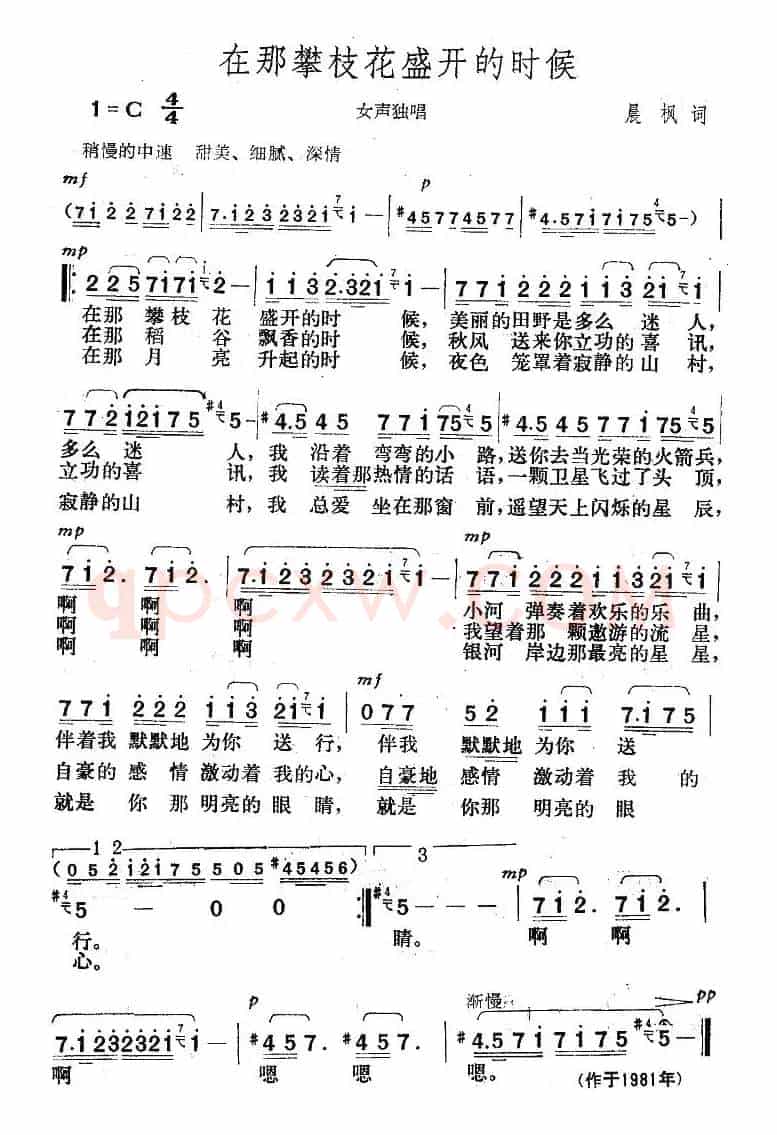 在那攀枝花盛开的时候
1=C 4/4 女声独唱 晨枫 词
稍慢的中速 甜美、细腻、深情
mf p
(7i22 7i22 7.i23 232i 7 i - #4577 4577 #4.57i 7i75 #4 5-)
mp
225 7i7i i 2 - i i3 2.32i 7 i - 77i 222 ii3 2i 7 i
在那攀枝花 盛开的时 候,美丽的田野是多么 迷 人,
在那 稻 谷 飘香的时 候,秋风 送来你立功的喜 讯,
在那 月 亮 升起的时 候,夜色 笼罩着寂静的山 村,
772 i2i75 #4 5- #4.5 45 77i 75 #4.5 457 7i75 #4 5
多么 迷 人,我 沿着 弯弯的小 路,送你去当光荣的火箭兵,
立功的喜 讯,我 读着那热情的话 语,一颗卫星飞过了头 顶,
寂静的山 村,我 总爱 坐在那窗 前,遥望天上闪烁的星 辰,
mp mp
7i2. 7i2. 7.i23 232i 7 i - 77i 222 ii3 2i 7 i
啊 啊 啊 小河 弹奏着欢乐的乐 曲,
啊 啊 啊 我望着那 颗遨游的流 星,
啊 啊 啊 银河 岸边那最亮的星 星,
mf
77i 222 ii3 2i 7 i 077 52 iii 7.i75
伴着我 默默地 为你 送 行, 伴我 默默地 为你 送
自豪的 感 情 激动着 我的心, 自豪地 感情 激动着 我 的
就是 你 那 明亮的 眼 睛, 就是 你那 明亮的 眼
1 2 3
(052 i2i75 505 #45456) mp
#4 5 - 0 0 #4 5 - - - 7i2. 7i2.
行。 睛。 啊 啊
心。
p 渐慢 pp
7.i23 232i 7 i - #457. #457. #4.57i 7i75 #4 5-
啊 嗯 嗯 嗯。 (作于1981年)
qpcxw.com